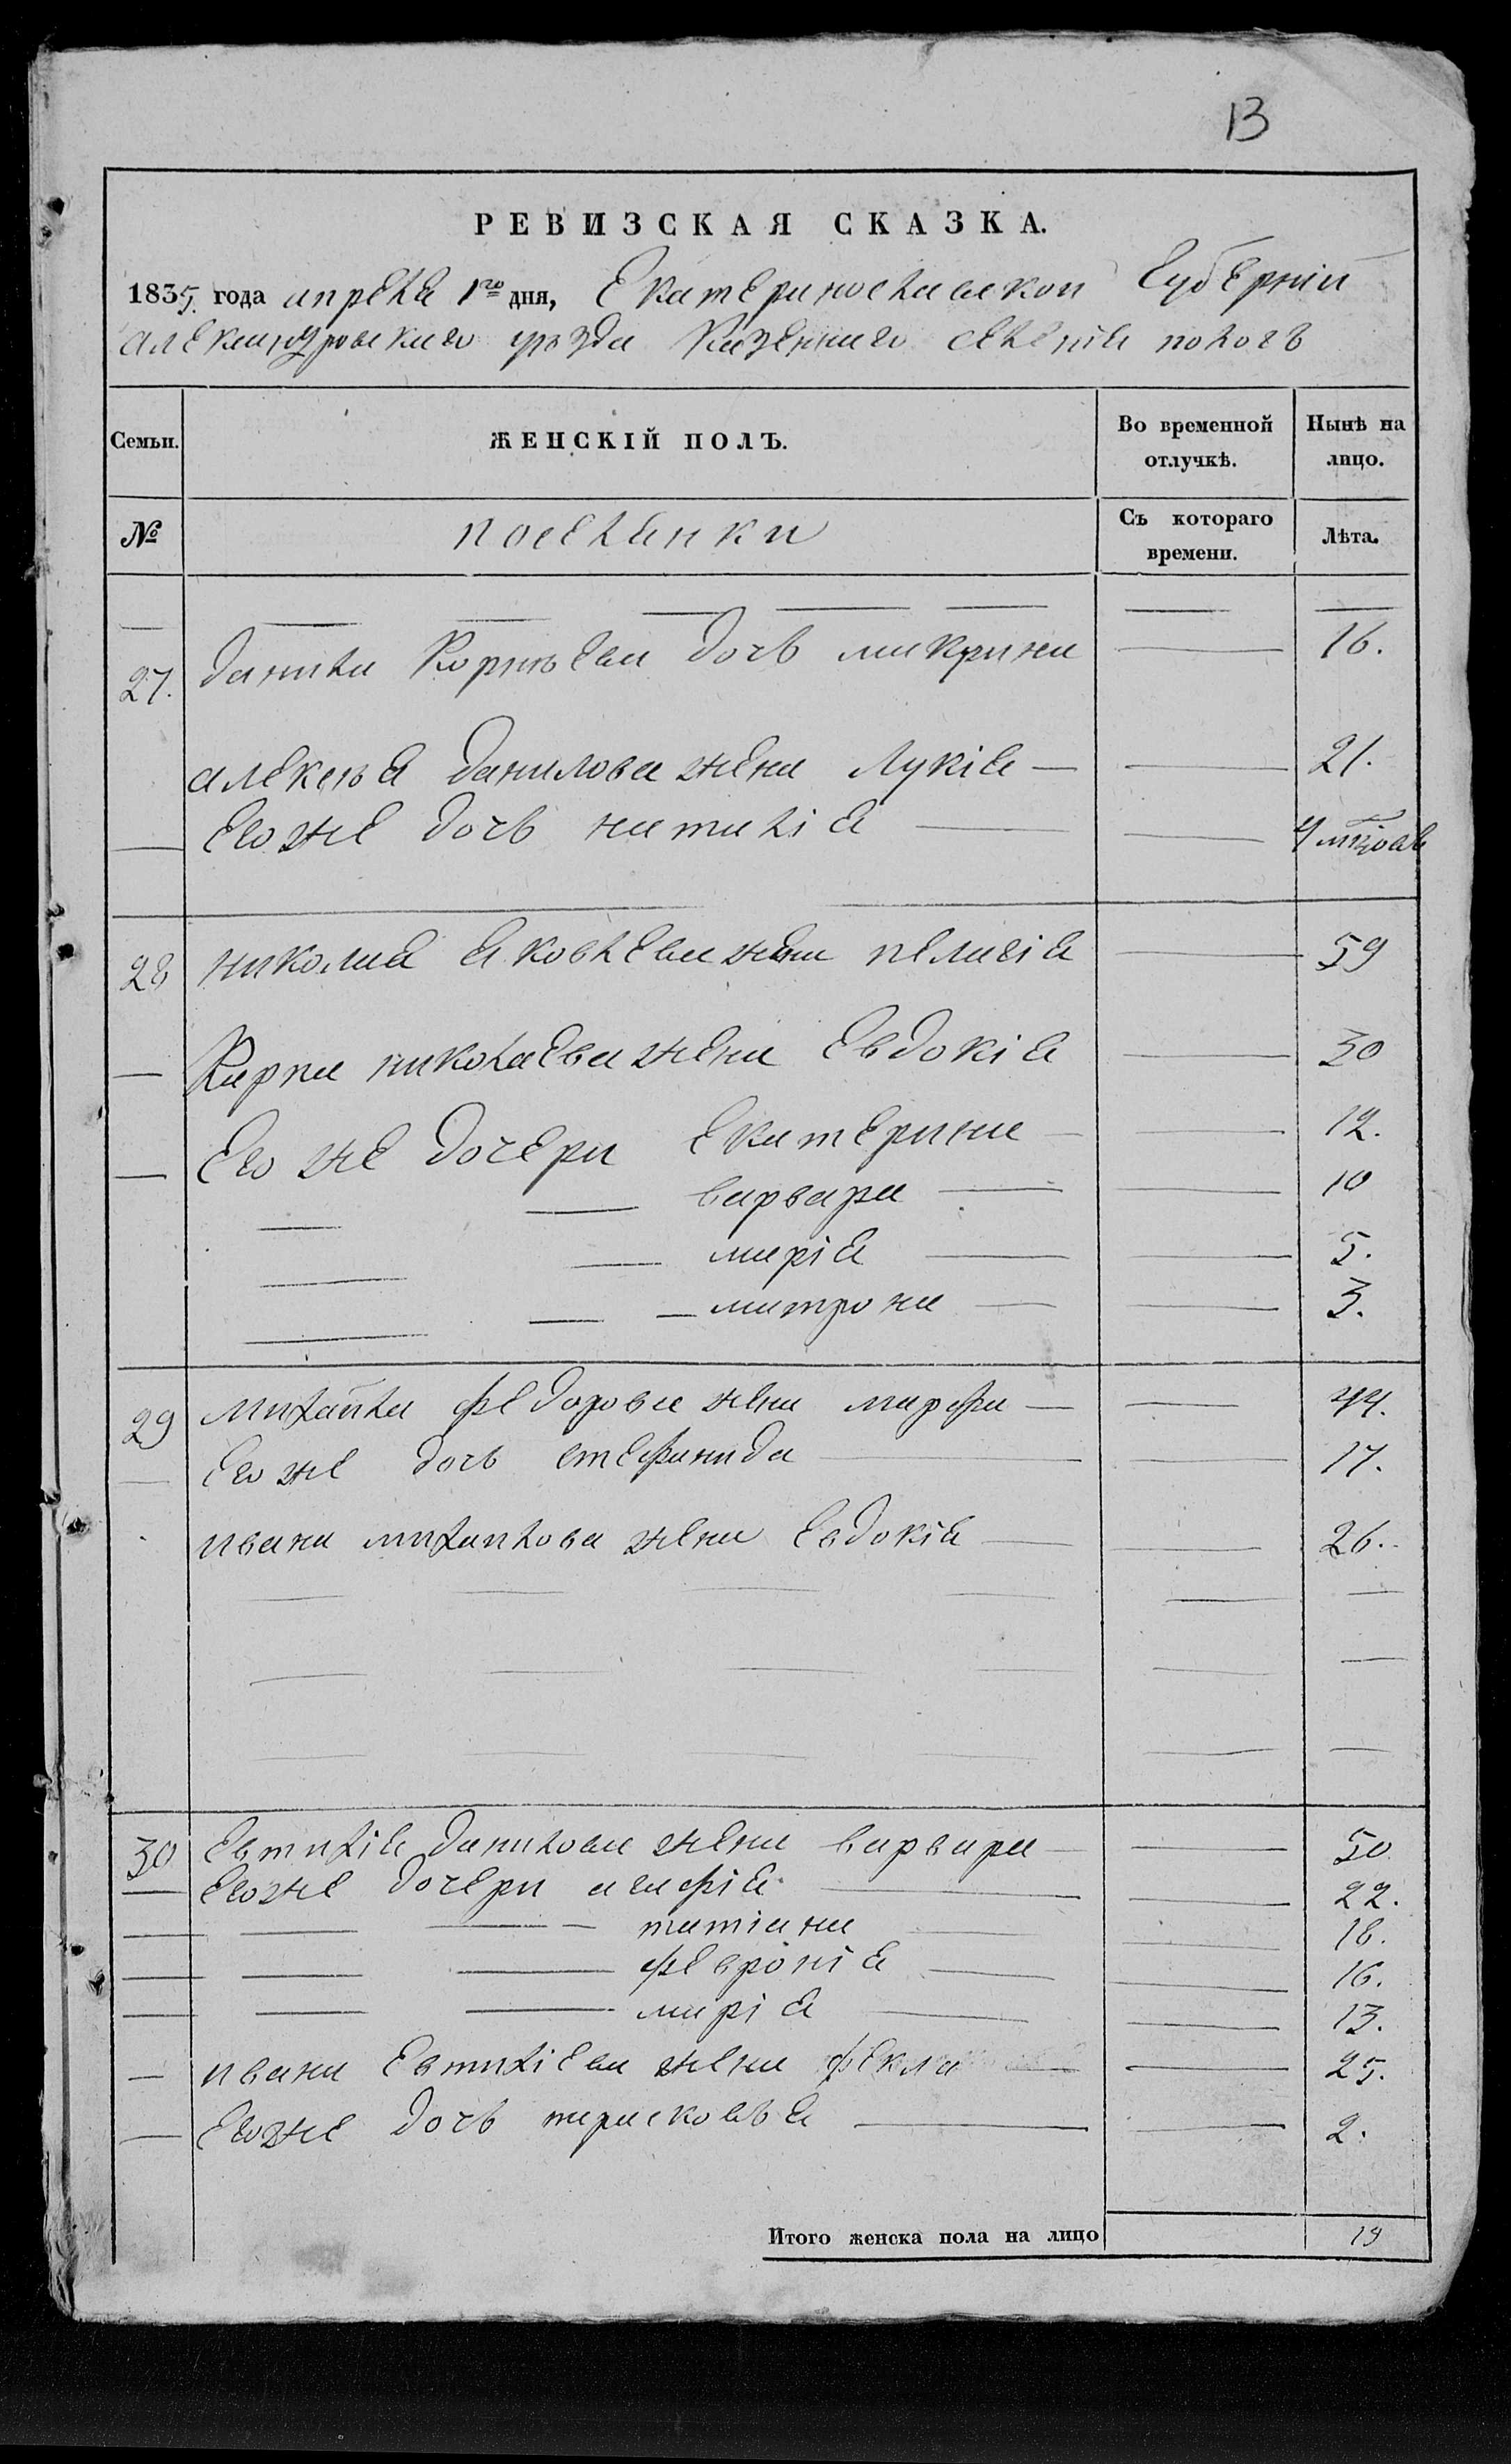 13
РЕВИЗСКАЯ СКАЗКА.
1835. года апреля 1го дня, Екатеринославской Губерніи
александровского уезда Казенного селенія пологъ
Семьи. ЖЕНСКІЙ ПОЛЪ. Во временной отлучкѣ. Нынѣ на лицо.
№ поселянки Съ котораго времени. Лѣта.
27. данила Корнѣева дочь макрина 16.
алексѣя данилова жена Лукія 21.
Его же дочь наталія
28 николая яковлева жена пелагія 59
Карпа николаева жена Евдокія 30
Его же дочери Екатерина 12.
варвара 10
марія 5.
матрона 3.
29 михайла федорова жена марфа 44.
Его же дочь стефанида 17.
ивана михайлова жена Евдокія 26.
30 Евтихія данилова жена варвара 50
Его же дочери агафія 22.
татіана 18.
февронія 16.
марія 13.
ивана Евтихіева жена фекла 25.
Его же дочь парасковья 2.
Итого женска пола на лицо 19